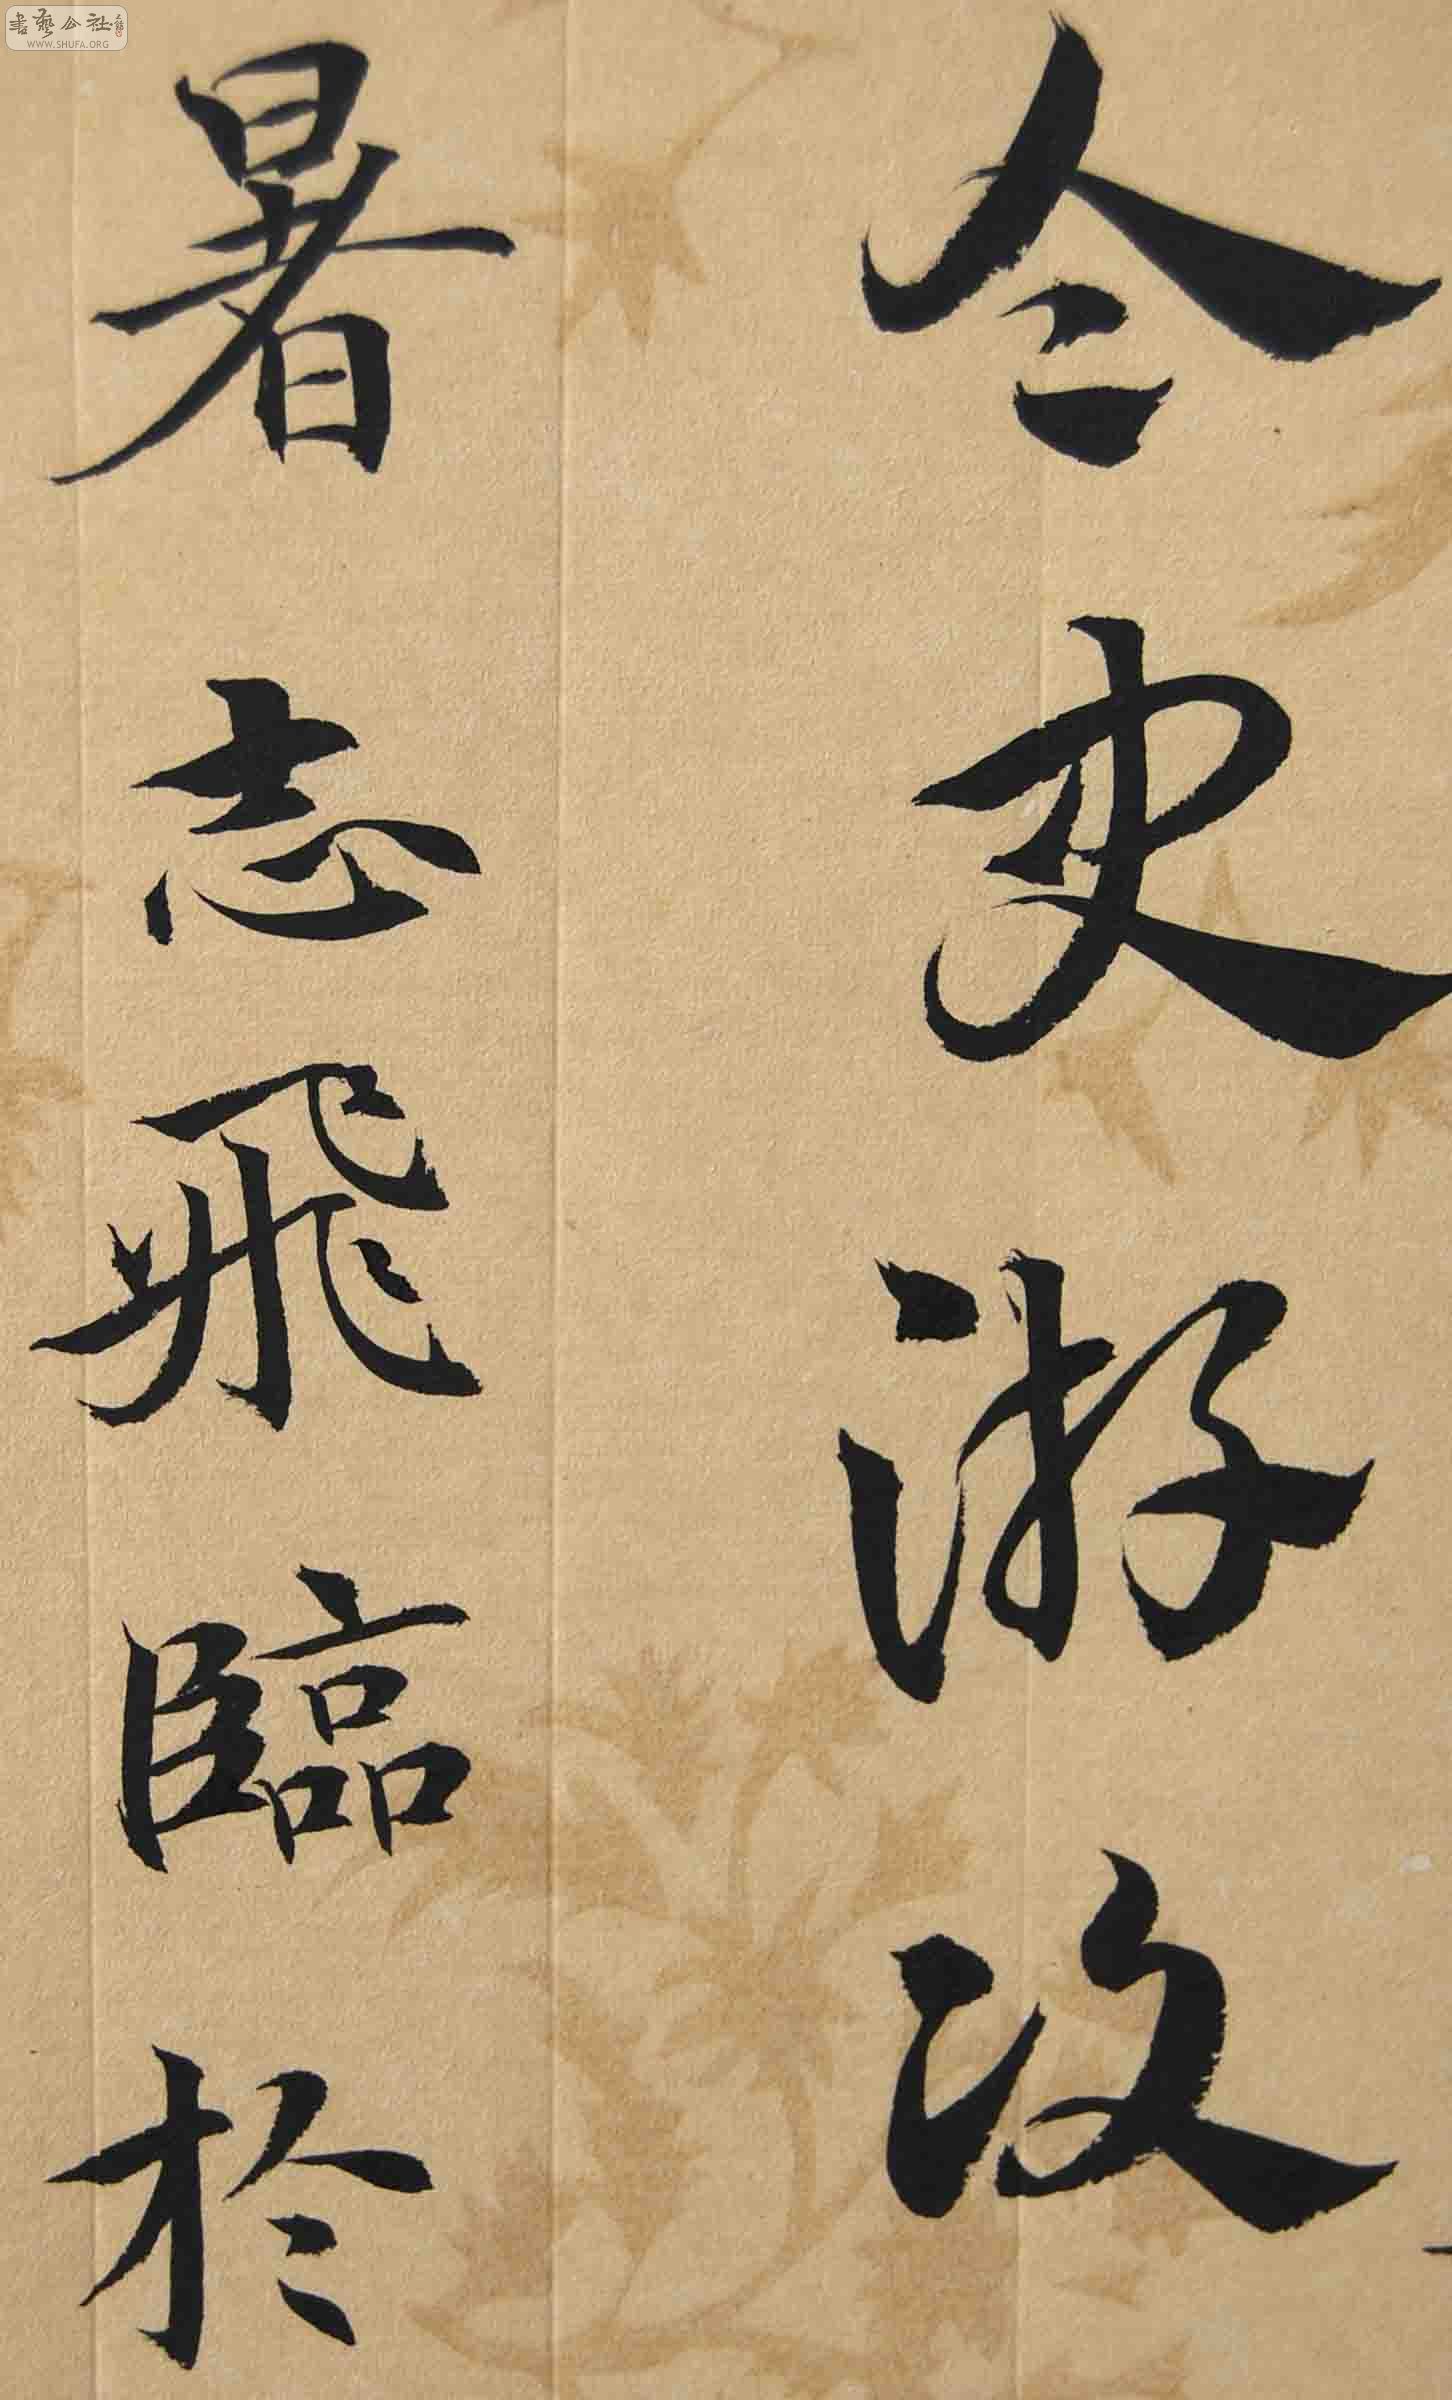 令史游没
暑志飛臨於
書藝公社
WWW.SHUFA.ORG